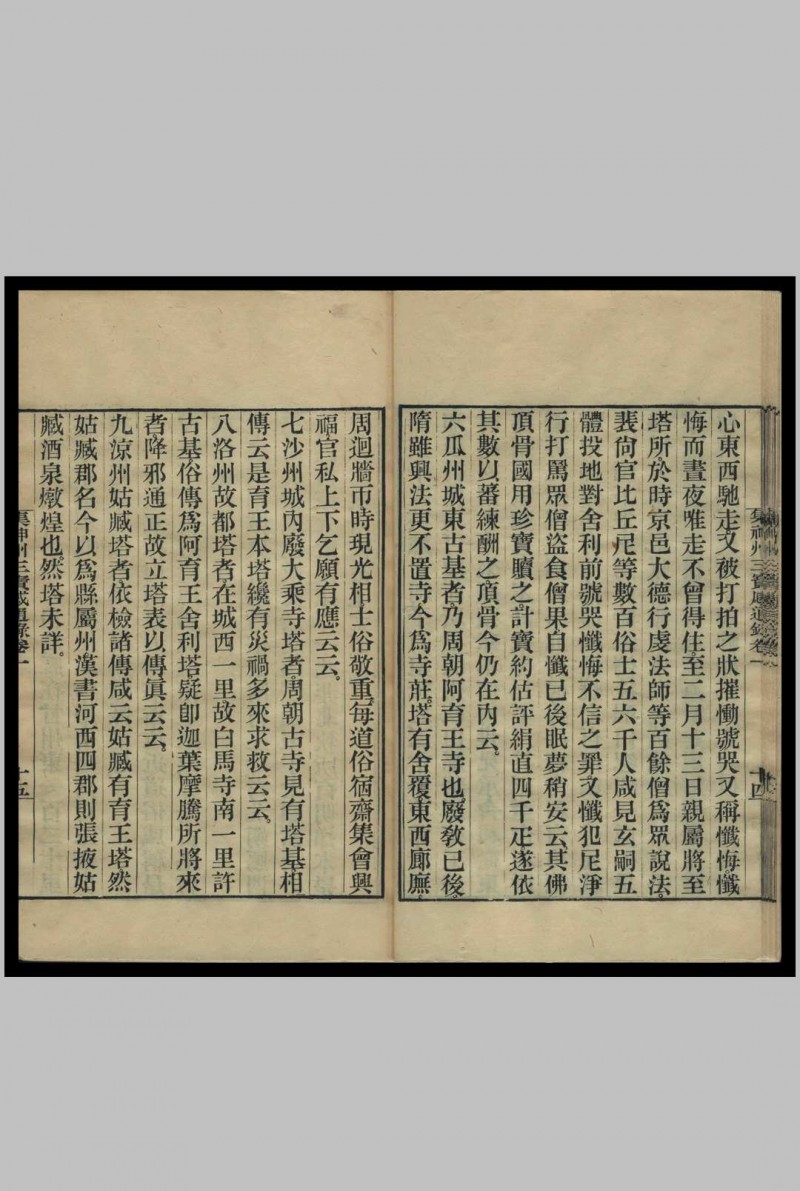 集神州三寶感通錄卷一
十四
心東西馳走又被打拍之狀摧慟號哭又稱懺悔懺
悔而晝夜唯走不曾得住至二月十三日親屬將至
塔所於時京邑大德行虔法師等百餘僧爲眾說法。
裴尙官比丘尼等數百俗士五六千人咸見玄嗣五
體投地對舍利前號哭懺悔不信之罪又懺犯尼淨
行打罵眾僧盜食僧果自懺已後眠夢稍安云其佛
頂骨國用珍寶贖之計寶約估評絹直四千疋遂依
其數以蕃練酬之頂骨今仍在內云。
六瓜州城東古基者乃周朝阿育王寺也廢教已後
隋雖興法更不置寺今爲寺莊。塔有舍覆東西廊廡。
周迴牆帀時現光相士俗敬重每道俗宿齋集會興
福官私上下乞願有應云云。
七沙州城內廢大乘寺塔者周朝古寺見有塔基相
傳云是育王本塔纔有災禍多來求救云云。
八洛州故都塔者在城西一里故白馬寺南一里許
古基俗傳爲阿育王舍利塔疑卽迦葉摩騰所將來
者降邪通正故立塔表以傳眞云云。
九涼州姑臧塔者依檢諸傳咸云姑臧有育王塔然
姑臧郡名今以爲縣屬州漢書河西四郡則張掖姑
臧酒泉燉煌也。然塔未詳。
集神州三寶感通錄卷一
十五